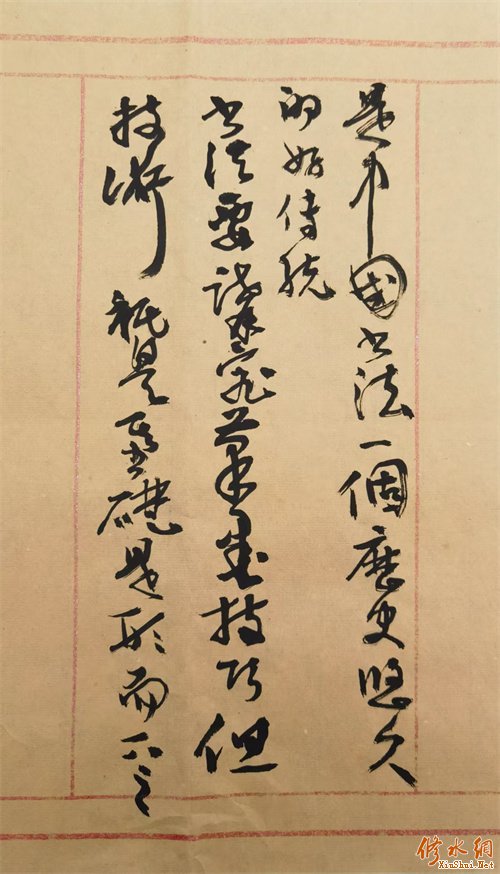 是中國书法一個歷史悠久
的好传统
书法要講究筆墨技巧但
技術祇是基礎是形而下之
修水網
XiuShui.Net